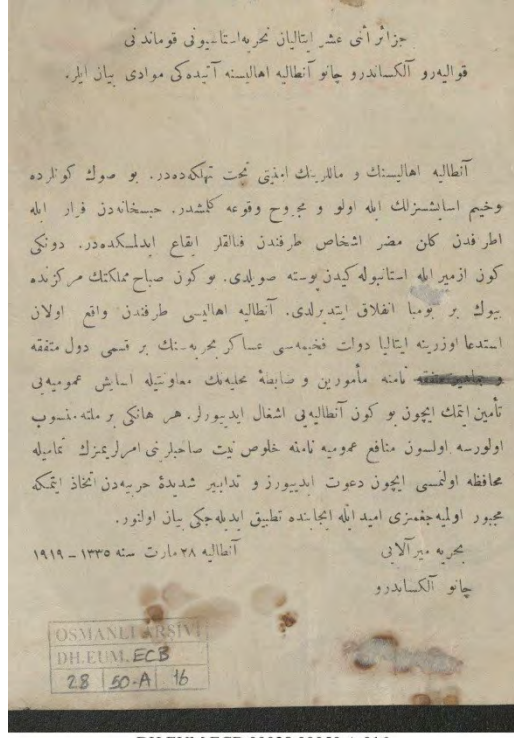 جزائر اثنی عشر ایتالیان بحریه استاسیونی قوماندنی
قوالیه‌رو آلکساندرو چانو آنطالیه اهالیسنه آتیده‌کی موادی بیان ایلر.
آنطالیه اهالیسنك و ماللرینك امنیتی تحت تهلکه‌ده‌در. بو صوك کونلرده
وخیم اسایشسزلك ایله اولو و مجروح وقوعه کلمشدر. حبسخانه‌دن فرار ایله
اطرفدن کلن مضر اشخاص طرفندن فنالقلر ایقاع ایدلمکده‌در. دونکی
کون ازمیر ایله استانبوله کیدن پوسته صویلدی. بو کون صباح مملکتك مرکزنده
بیوك بر بومبا انفلاق ایتدیرلدی. آنطالیه اهالیسی طرفندن واقع اولان
استدعا اوزرینه ایتالیا دولت فخیمه‌سی عساکر بحریه‌سنك بر قسمی دول متفقه
نامنه مأمورین و ضابطهٔ محلیه‌نك معاونتیله اسایش عمومیه‌یی
تأمین ایتمك ایچون بو کون آنطالیه‌یی اشغال ایدییورلر. هر هانکی بر ملته منسوب
اولورسه اولسون منافع عمومیه نامنه خلوص نیت صاحبلرنی امرلریمزك تمامیله
محافظه اولنمسی ایچون دعوت ایدییورز و تدابیر شدیدهٔ حربیه‌دن اتخاذ ایتمکه
مجبور اولمیه‌جغمزی امید ایله ایجابنده تطبیق ایدیله‌جکی بیان اولنور.
بحریه میرآلایی
آنطالیه ۲۸ مارت سنه ۱۳۳۵ – ۱۹۱۹
چانو آلکساندرو
OSMANLI ARŞİVİ
DH.EUM. ECB
28 50-A 16